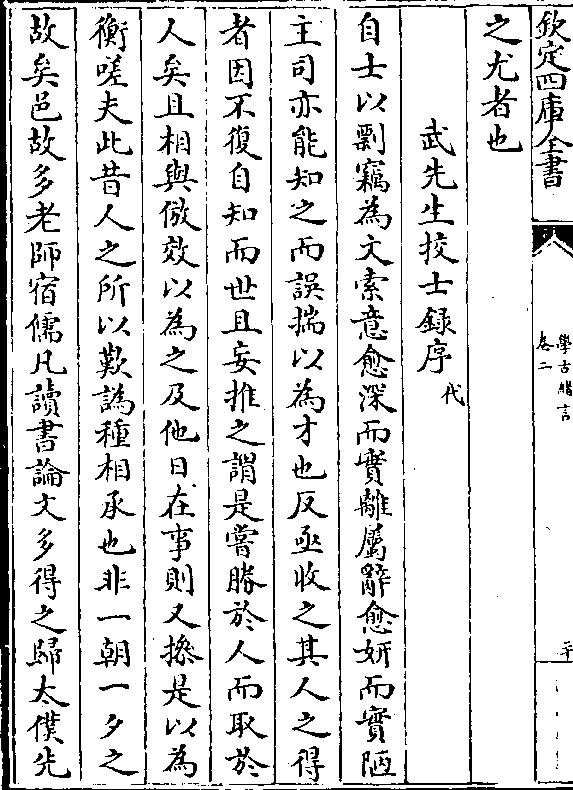 欽定四庫全書
學古緒言
卷二
二十
之尤者也
武先生挍士錄序代
自士以剽竊為文索意愈深而實離屬辭愈妍而實陋
主司亦能知之而誤揣以為才也反亟收之其人之得
者因不復自知而世且妄推之謂是嘗勝於人而取於
人矣且相與倣效以為之及他日在事則又㩀是以為
衡嗟夫此昔人之所以歎譌種相承也非一朝一夕之
故矣邑故多老師宿儒凡讀書論文多得之歸太僕先